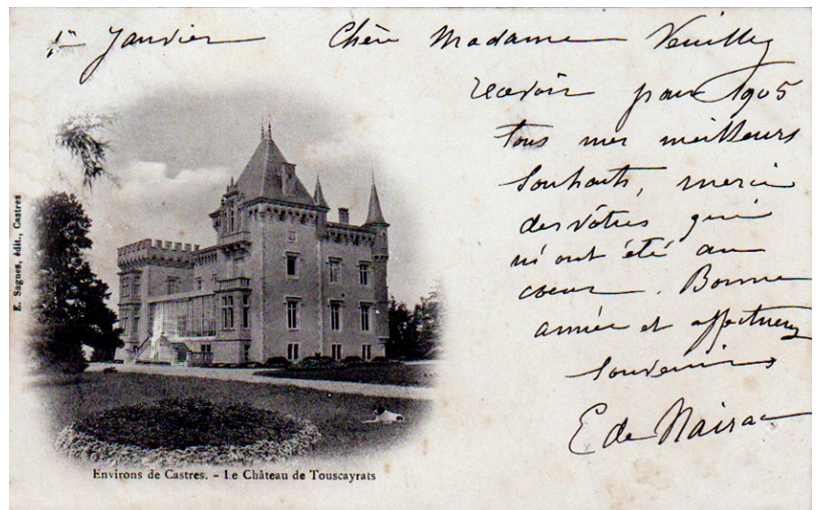 1er Janvier Chère Madame Veuilley
recevoir pour 1905
tous mes meilleurs
Souhaits, merci
des vôtres qui
m'ont été au
coeur. Bonne
année et affectueux
Souvenirs
E de Nairac
E. Sagnes, édit., Castres
Environs de Castres. - Le Château de Touscayrats